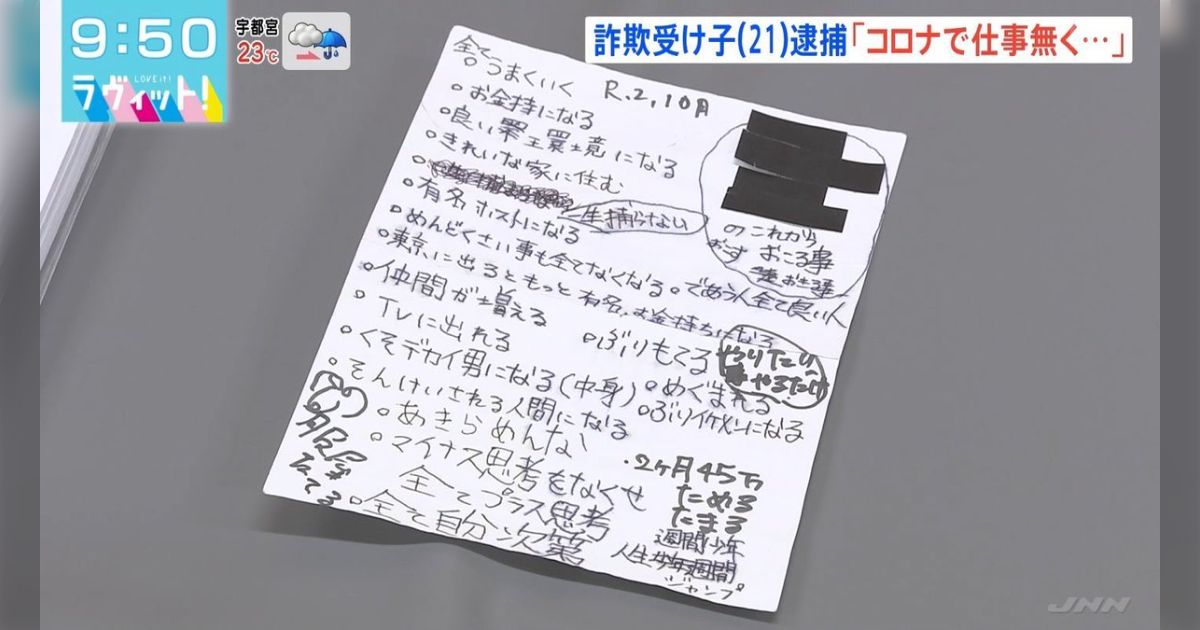 9:50
LOVE it!
ラヴィット!
宇都宮
23℃
詐欺受け子(21)逮捕「コロナで仕事無く…」
全て
うまくいく
R.2,10月
お金持になる
良い環境になる
きれいな家に住む
一生捕らない
有名ホストになる
めんどくさい事も全てなくなる
であう人全て良い人
東京に出るともっと有名、お金持ちになる
仲間が増える
TVに出れる
ぶりもてる
くそデカイ男になる(中身)
めぐまれる
そんけいされる人間になる
ぶりイケメンになる
あきらめんない
マイナス思考をなくせ
全てプラス思考
全て自分次第
のこれから
おこる事
やりたい
やるだけ
2ヶ月45万
ためる
たまる
週間少年
人生
週間
ジャンプ
JNN